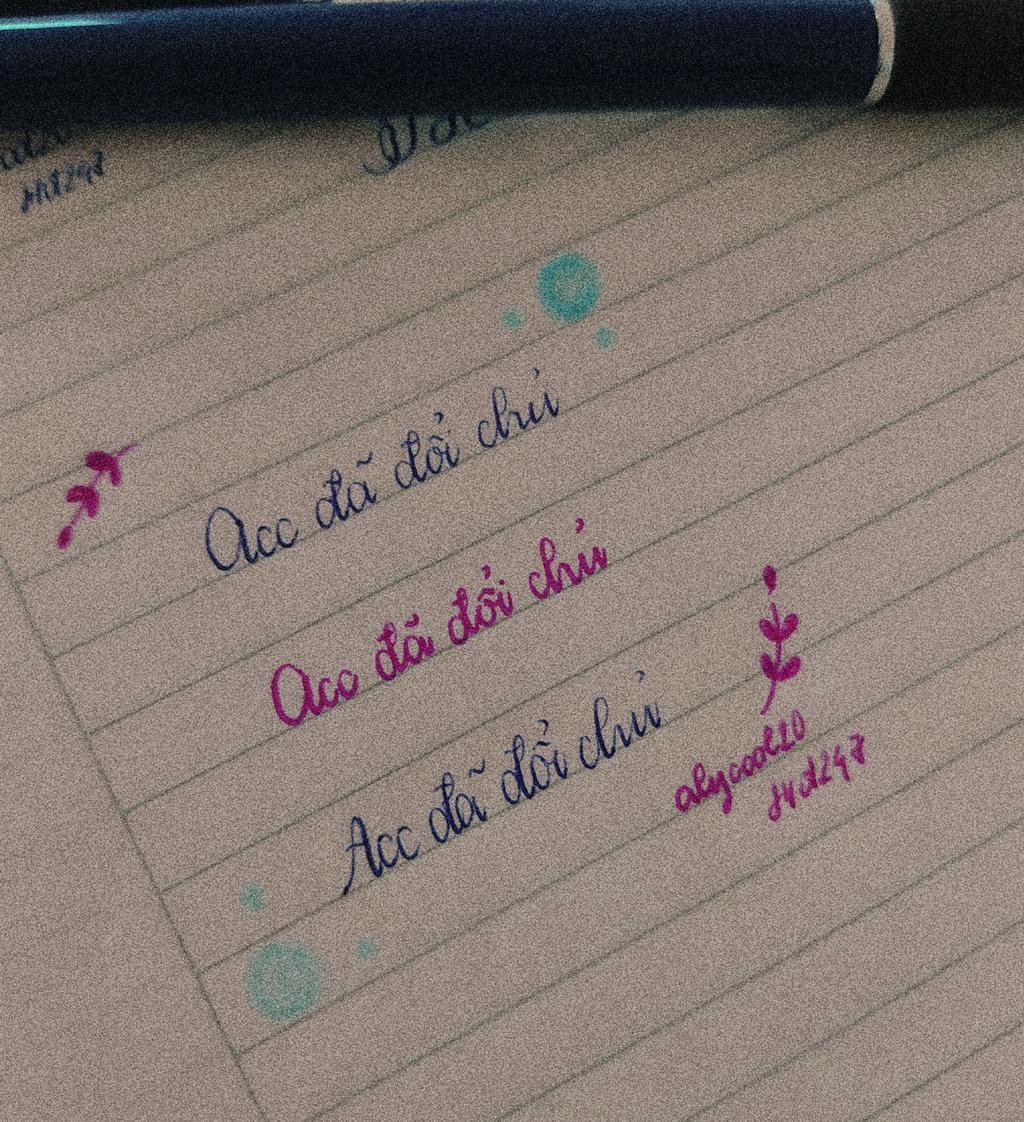 Acc đã đổi chủ
Acc đã đổi chủ
Acc đã đổi chủ
alycool20